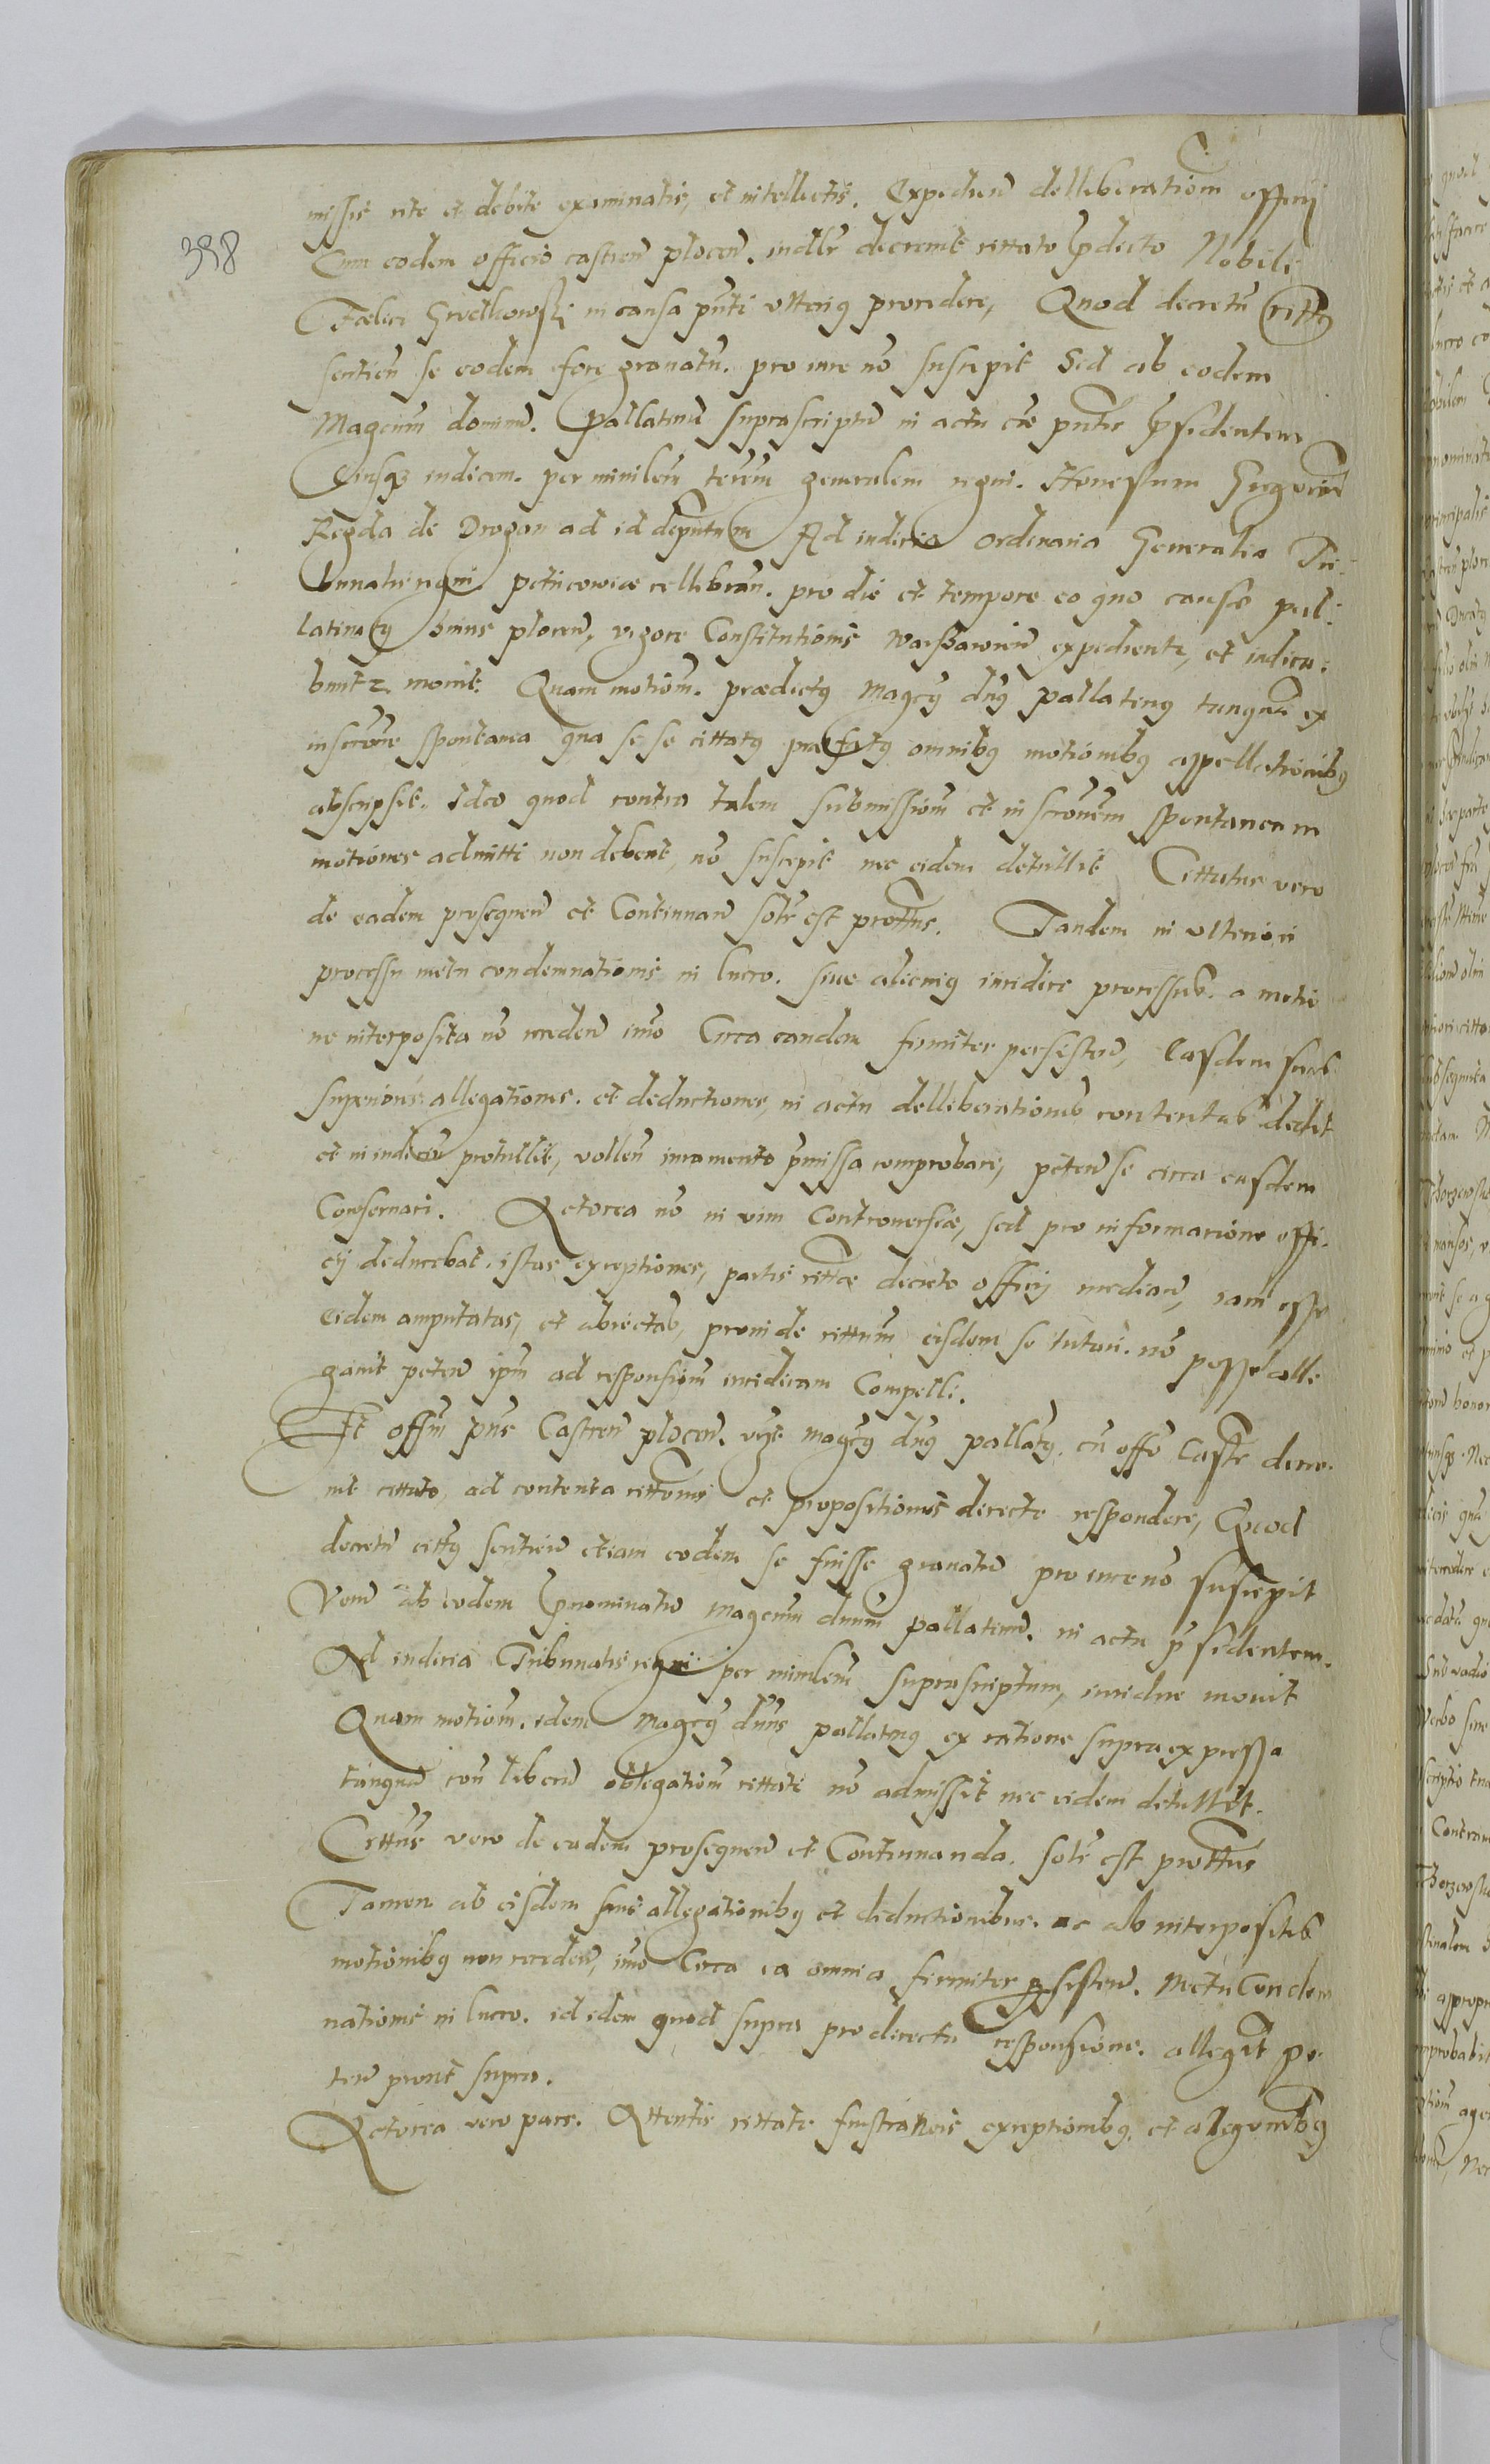 missis rite et debite examinatis, et intellectis. Expedien̄ delliberatiom̄ officij
398
Cum eodem officio castren̄ plocen̄. indlr̄ decrevit cittato p̄dicto Nobili
Fœlici Srodkowskj in causa pn̄ti vlterig procedere, Quod decretū cittg
sentien̄ se eodem fore gravatū. pro iure nō suscepit Sed ab eodem
Magcum̄ dominū. Pallatinū suprascriptū in actu cāe pn̄tis p̄sidentem
Eiusq iudicem. per minlem̄ terēm̄ generalem regni. Honestum Gregoriū
Regda de Drogan ad id deputatum Ad iudicia Ordinaria Generalia Tri-
bunalis regni petricowiæ cellibran̄. pro die et tempore eo quo causæ pal-
latinatg huius plocen̄, vigore Constitutionis Warssavien̄ expedientr, et iudica-
buntr. movit. Quam motiom̄. prædictg magcg dng pallating tanquā ex
inscrōne spontanea qua se se cittatg præfatg omnibg motionibg appellationibg
abscripsit. Ideo quod contra talem submissiom̄ et inscrōnem spontaneam
motiones admitti non debent, nō suscepit nec eidem detullit Cittatus vero
de eadem prosequen̄ et Continuan̄ solr̄ est prottus. Tandem in vlteriori
processu metu condemnationis in lucro. sive alicuig iuridice processus. a motio
ne interposita nō receden̄ imo Circa eandem firmiter persisten̄, Easdem suas
superiores allegationes. et deductiones, in actu delliberationis contentas dedit
et in iudiciū protullit, vollen̄ iuramento p̄missa comprobare, peten̄ se circa easdem
Conservari. Actorea nō in vim Controversiæ, sed pro informatione offi-
cij deducebat. istas exceptiones, partis cittæ decreto officij median̄, iam esse
eidem amputatas, et abiectas, proinde cittum̄ eisdem se tutari. nō posse alle
gavit peten̄ ipm̄ ad responsiom̄ iuridicam Compelli.
Et offm̄ pn̄s Castren̄ plocen̄. vz magcg dng pallatg. cū offo Castr̄ decre-
vit cittato, ad contenta cittōnis et propositionis directe respondere, Quod
decretū cittg sentien̄ etiam eodem se fuisse gravatū pro iure nō suscepit
Verū ab eodem p̄nominatū magcum̄ dnum pallatinū. in actu p̄sidentem.
Ad iudicia Tribunalis regni per minlem̄ suprascriptum, iuridice movit
Quam motiom̄. idem magcg dn̄s pallatng ex ratione supra expressa
tanquā con̄ liberā obligatiom̄ cittati nō admissit nec eidem detullit.
Cittūs vero de eadem prosequen̄ et Continuanda. solr̄ est prottus
Tamen ab eisdem suis allegationibg et deductionibus. ac ab interpositis
motionibg non receden̄, imo Circa ea omnia firmiter persisten̄. Metu Condem
nationis in lucro. id idem quod supra pro directa responsione. allegāt pe-
ten̄ prout supra.
Actorea vero pars. Attentis cittati frustraneis exceptionibg, et allegōnibg